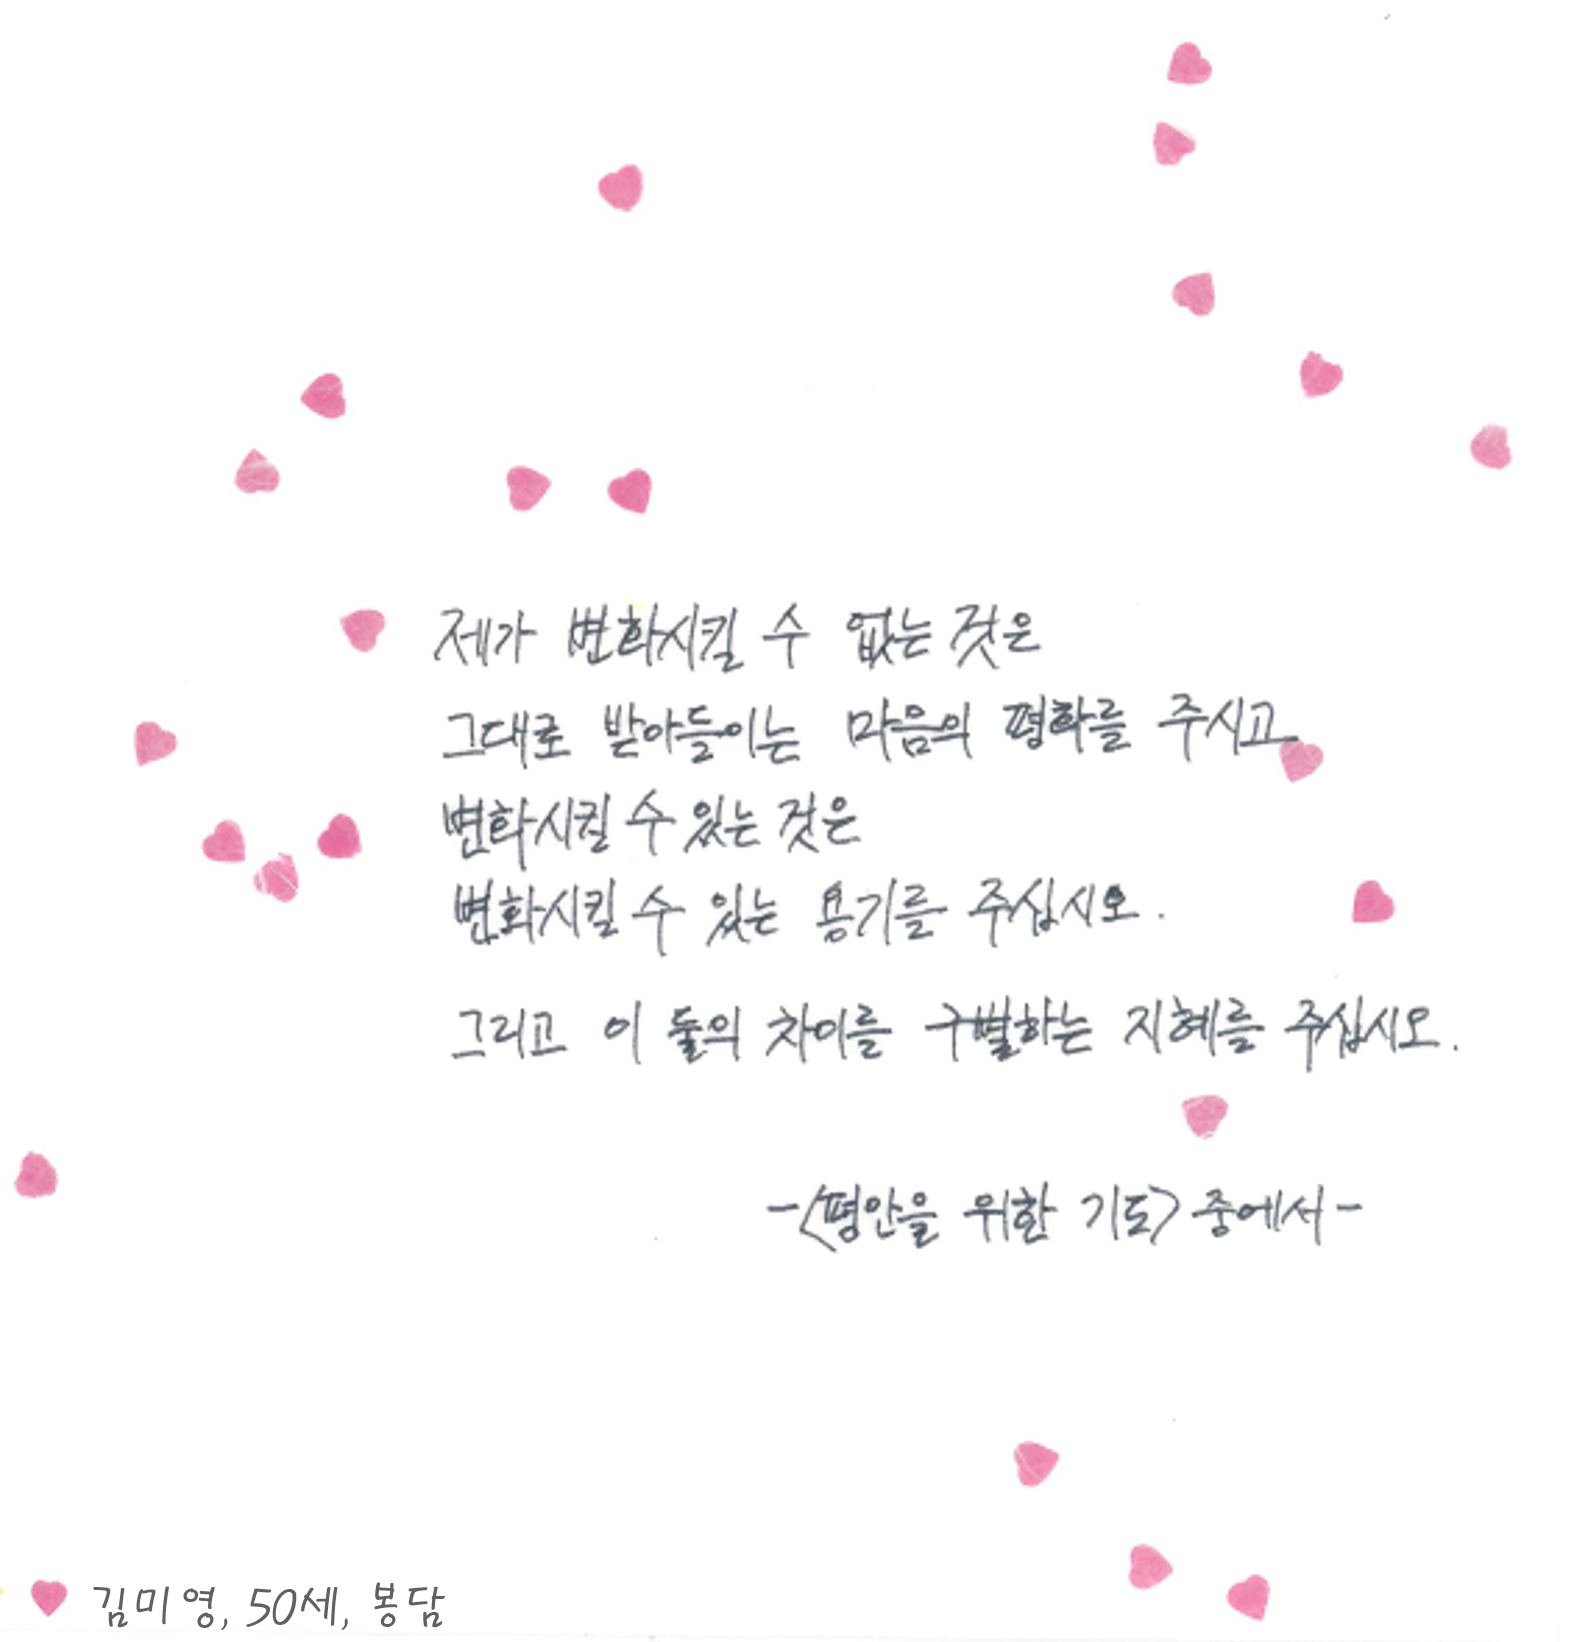 제가 변화시킬 수 없는 것은
그대로 받아들이는 마음의 평화를 주시고
변화시킬 수 있는 것은
변화시킬 수 있는 용기를 주십시오.
그리고 이 둘의 차이를 구별하는 지혜를 주십시오.
-<평안을 위한 기도> 중에서-
김미영, 50세, 봉담